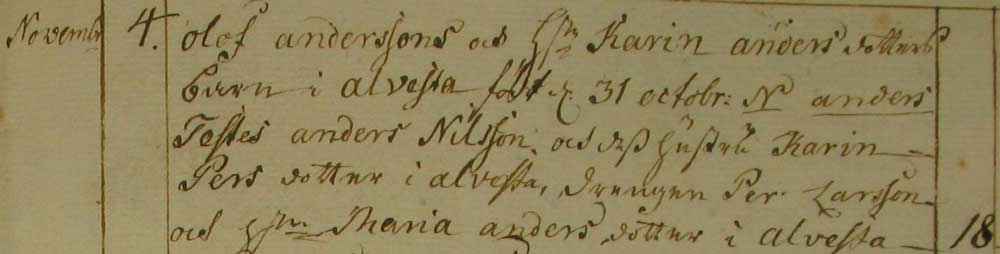 Novembr 4. Olof anderssons och Hstr Karin anders dotters
barn i alvesta född d. 31 octobr: N anders
Testes anders Nilsson. och dess hustru Karin
Pers dotter i alvesta, Drengen Per Larsson
och Maria anders dotter i alvesta 18